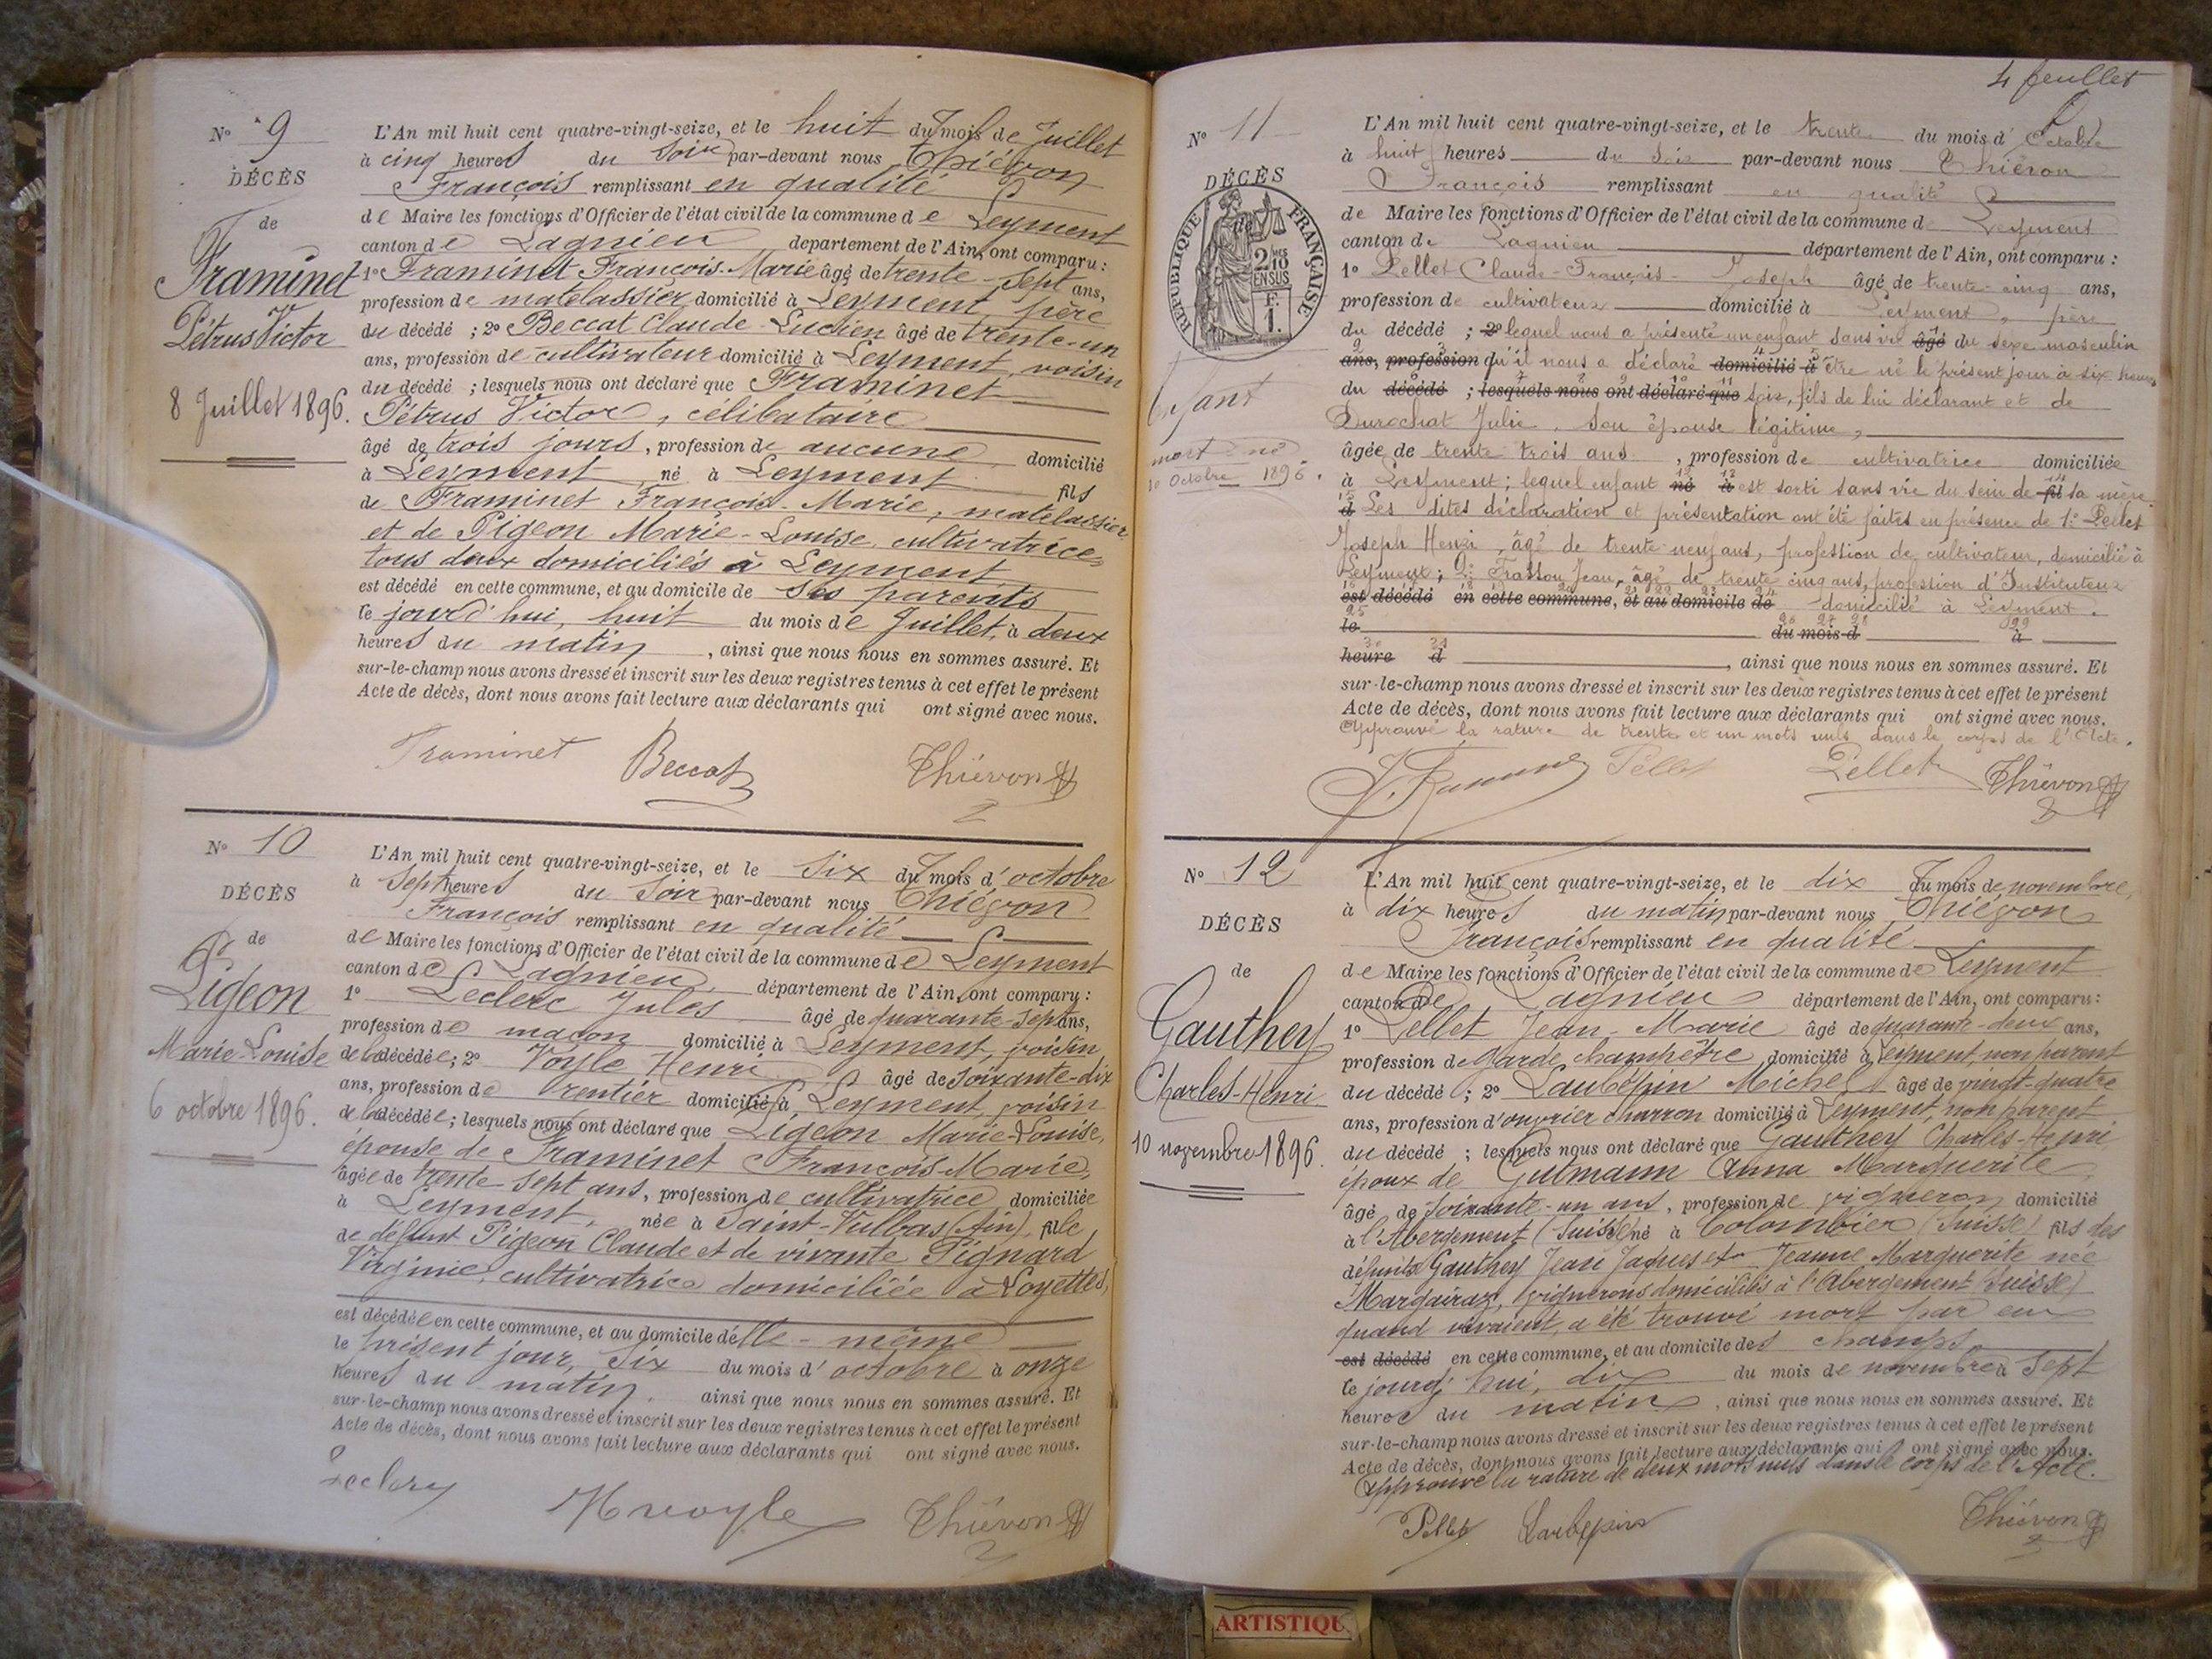 N° 9
DÉCÈS
de
Framinet
Pétrus Victor
8 Juillet 1896.
L'An mil huit cent quatre-vingt-seize, et le huit du mois de Juillet
à cinq heures du soir par-devant nous Thiévon
François remplissant en qualité
de Maire les fonctions d'Officier de l'état civil de la commune de Leyment
canton de Lagnieu département de l'Ain, ont comparu :
1° Framinet François-Marie âgé de trente-sept ans,
profession de matelassier domicilié à Leyment, père
du décédé ; 2° Beccat Claude-Lucien âgé de trente-un
ans, profession de cultivateur domicilié à Leyment, voisin
du décédé ; lesquels nous ont déclaré que Framinet
Pétrus Victor, célibataire
âgé de trois jours, profession de aucune domicilié
à Leyment, né à Leyment fils
de Framinet François-Marie, matelassier
et de Pigeon Marie-Louise, cultivatrice,
tous deux domiciliés à Leyment
est décédé en cette commune, et au domicile de ses parents
le jourd'hui, huit du mois de Juillet, à deux
heures du matin, ainsi que nous nous en sommes assuré. Et
sur-le-champ nous avons dressé et inscrit sur les deux registres tenus à cet effet le présent
Acte de décès, dont nous avons fait lecture aux déclarants qui ont signé avec nous.
Framinet Beccat Thiévon
N° 10
DÉCÈS
de
Pigeon
Marie-Louise
6 octobre 1896.
L'An mil huit cent quatre-vingt-seize, et le six du mois d'octobre
à sept heures du soir par-devant nous Thiévon
François remplissant en qualité
de Maire les fonctions d'Officier de l'état civil de la commune de Leyment
canton de Lagnieu, département de l'Ain, ont comparu :
1° Leclerc Jules âgé de quarante-sept ans,
profession de maçon domicilié à Leyment, voisin
de la décédée ; 2° Voyle Henri âgé de soixante-dix
ans, profession de rentier domicilié à Leyment, voisin
de la décédée ; lesquels nous ont déclaré que Pigeon Marie-Louise,
épouse de Framinet François-Marie,
âgée de trente-sept ans, profession de cultivatrice domiciliée
à Leyment, née à Saint-Vulbas (Ain), fille
de défunt Pigeon Claude et de vivante Pignard
Virginie, cultivatrice domiciliée à Loyettes,
est décédée en cette commune, et au domicile d'elle-même
le présent jour, six du mois d'octobre à onze
heures du matin, ainsi que nous nous en sommes assuré. Et
sur-le-champ nous avons dressé et inscrit sur les deux registres tenus à cet effet le présent
Acte de décès, dont nous avons fait lecture aux déclarants qui ont signé avec nous.
Leclerc Hvoyle Thiévon
4 feuillet
N° 11
DÉCÈS
de
RÉPUBLIQUE FRANÇAISE
2/10 EN SUS
F.
1.
Enfant
mort-né
30 Octobre 1896.
L'An mil huit cent quatre-vingt-seize, et le trente du mois d'Octobre
à huit heures du soir par-devant nous Thiévon
François remplissant en qualité
de Maire les fonctions d'Officier de l'état civil de la commune de Leyment
canton de Lagnieu département de l'Ain, ont comparu :
1° Pellet Claude-François-Joseph âgé de trente-cinq ans,
profession de cultivateur domicilié à Leyment, père
du décédé ; 2° lequel nous a présenté un enfant sans vie âgé du sexe masculin
ans, profession qu'il nous a déclaré domicilié à être né le présent jour à six heures
du décédé ; lesquels nous ont déclaré que soir, fils de lui déclarant et de
Durochat Julie, son épouse légitime,
âgée de trente trois ans, profession de cultivatrice domiciliée
à Leyment ; lequel enfant né à est sorti sans vie du sein de fil sa mère
d Les dites déclaration et présentation ont été faites en présence de 1° Pellet
Joseph Henri, âgé de trente-neuf ans, profession de cultivateur, domicilié à
Leyment ; 2° Jean, âgé de trente cinq ans, profession d'Instituteur
est décédé en cette commune, et au domicile de domicilié à Leyment.
le du mois d à
heure d , ainsi que nous nous en sommes assuré. Et
sur-le-champ nous avons dressé et inscrit sur les deux registres tenus à cet effet le présent
Acte de décès, dont nous avons fait lecture aux déclarants qui ont signé avec nous.
Approuvé la rature de trente et un mots nuls dans le corps de l'Acte.
Pellet Pellet Thiévon
N° 12
DÉCÈS
de
Gauthey
Charles-Henri
10 novembre 1896.
L'An mil huit cent quatre-vingt-seize, et le dix du mois de novembre,
à dix heures du matin par-devant nous Thiévon
François remplissant en qualité
de Maire les fonctions d'Officier de l'état civil de la commune de Leyment
canton de Lagnieu département de l'Ain, ont comparu :
1° Pellet Jean-Marie âgé de quarante-deux ans,
profession de Garde champêtre domicilié à Leyment, non parent
du décédé ; 2° Laubépin Michel âgé de vingt-quatre
ans, profession d'ouvrier charron domicilié à Leyment, non parent
du décédé ; lesquels nous ont déclaré que Gauthey Charles-Henri
époux de Gulmann Anna Marguerite,
âgé de soixante-un ans, profession de vigneron domicilié
à l'Abergement (Suisse) né à Colombier (Suisse) fils des
défunts Gauthey Jean Jaques et Jeanne Marguerite née
Margairaz, vignerons domiciliés à l'Abergement (Suisse)
quand vivaient, a été trouvé mort par eux
est décédé en cette commune, et au domicile des champs,
le jourd'hui, dix du mois de novembre à sept
heures du matin, ainsi que nous nous en sommes assuré. Et
sur-le-champ nous avons dressé et inscrit sur les deux registres tenus à cet effet le présent
Acte de décès, dont nous avons fait lecture aux déclarants qui ont signé avec nous.
Approuvé la rature de deux mots nuls dans le corps de l'Acte.
Pellet Laubépin Thiévon
ARTISTIQU